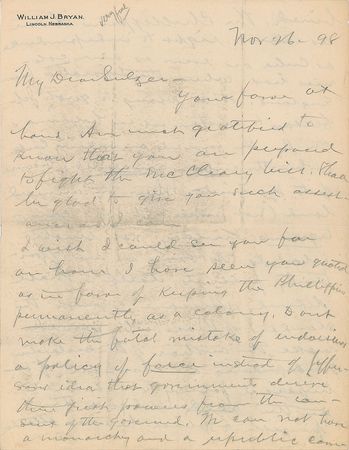 WILLIAM J. BRYAN.
LINCOLN, NEBRASKA.
Nov 26 - 98
My Dear Sulzer -
Your favor at
hand. Am much gratified to
know that you are prepared
to fight the McCleary bill. Shall
be glad to give you such assist-
ance as I can
I wish I could see you for
an hour. I have seen you quoted
as in favor of keeping the Phillippines
permanently, as a colony. Dont
make the fatal mistake of indorsing
a policy of force instead of Jeffer-
sons idea that governments derive
their just powers from the con-
sent of the governed. We can not have
a monarchy and a republic